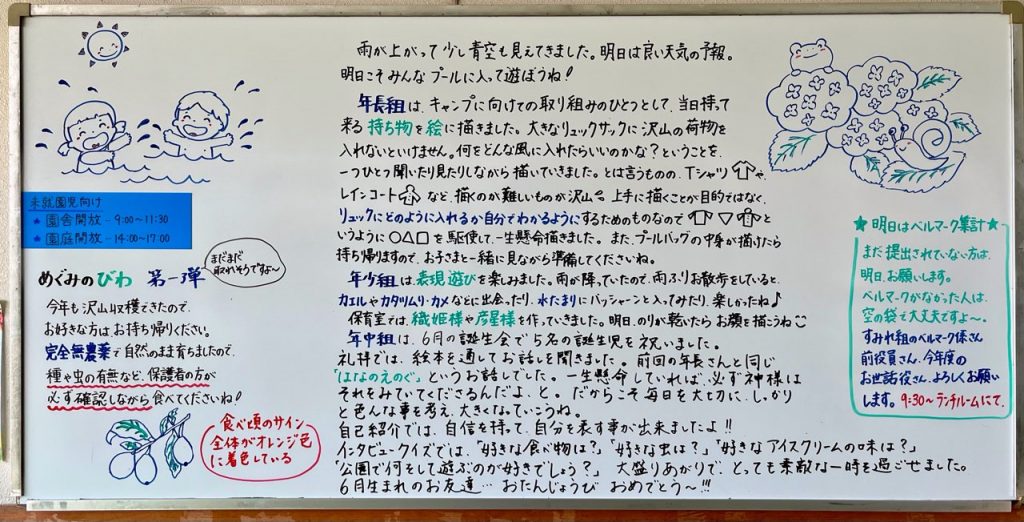 未就園児向け
★ 園舎開放 - 9:00～11:30
★ 園庭開放 - 14:00～17:00
めぐみのびわ 第一弾
まだまだ
取れそうです～
今年も沢山収穫できたので、
お好きな方はお持ち帰りください。
完全無農薬で自然のまま育ちましたので、
種や虫の有無など、保護者の方が
必ず確認しながら食べてくださいね!
食べ頃のサイン
全体がオレンジ色
に着色している
雨が上がって少し青空も見えてきました。明日は良い天気の予報。
明日こそみんなプールに入って遊ぼうね!
年長組は、キャンプに向けての取り組みのひとつとして、当日持って
来る持ち物を絵に描きました。大きなリュックサックに沢山の荷物を
入れないといけません。何をどんな風に入れたらいいのかな?ということを、
一つひとつ聞いたり見たりしながら描いていきました。とは言うものの、Tシャツや、
レインコートなど、描くのが難しいものが沢山。上手に描くことが目的ではなく、
リュックにどのように入れるか自分でわかるようにするためのものなので と
いうように○△□を駆使して、一生懸命描きました。また、プールバッグの中身が描けたら
持ち帰りますので、お子さまと一緒に見ながら準備してくださいね。
年少組は、表現遊びを楽しみました。雨が降っていたので、雨ふりお散歩をしていると、
カエルやカタツムリ・カメなどに出会ったり、水たまりにバッシャーンと入ってみたり、楽しかったね♪
保育室では、織姫様や彦星様を作っていきました。明日、のりが乾いたらお顔を描こうね
年中組は、6月の誕生会で5名の誕生児を祝いました。
礼拝では、絵本を通してお話しを聞きました。前回の年長さんと同じ
「はなのえのぐ」というお話しでした。一生懸命していれば、必ず神様は
それをみていてくださるんだよ、と。だからこそ毎日を大切に、しっかり
と色んな事を考え、大きくなっていこうね。
自己紹介では、自信を持って、自分を表す事が出来ましたよ!!
インタビュークイズでは、「好きな食べ物は?」「好きな虫は?」「好きなアイスクリームの味は?」
「公園で何をして遊ぶのが好きでしょう?」 大盛りあがりで、とっても素敵な一時を過ごせました。
6月生まれのお友達… おたんじょうび おめでとう～!!!
★ 明日はベルマーク集計 ★
まだ提出されていない方は、
明日、お願いします。
ベルマークがなかった人は、
空の袋で大丈夫ですよ～。
すみれ組のベルマーク係さん
前役員さん、今年度の
お世話役さん、よろしくお願い
します。9:30～ランチルームにて、